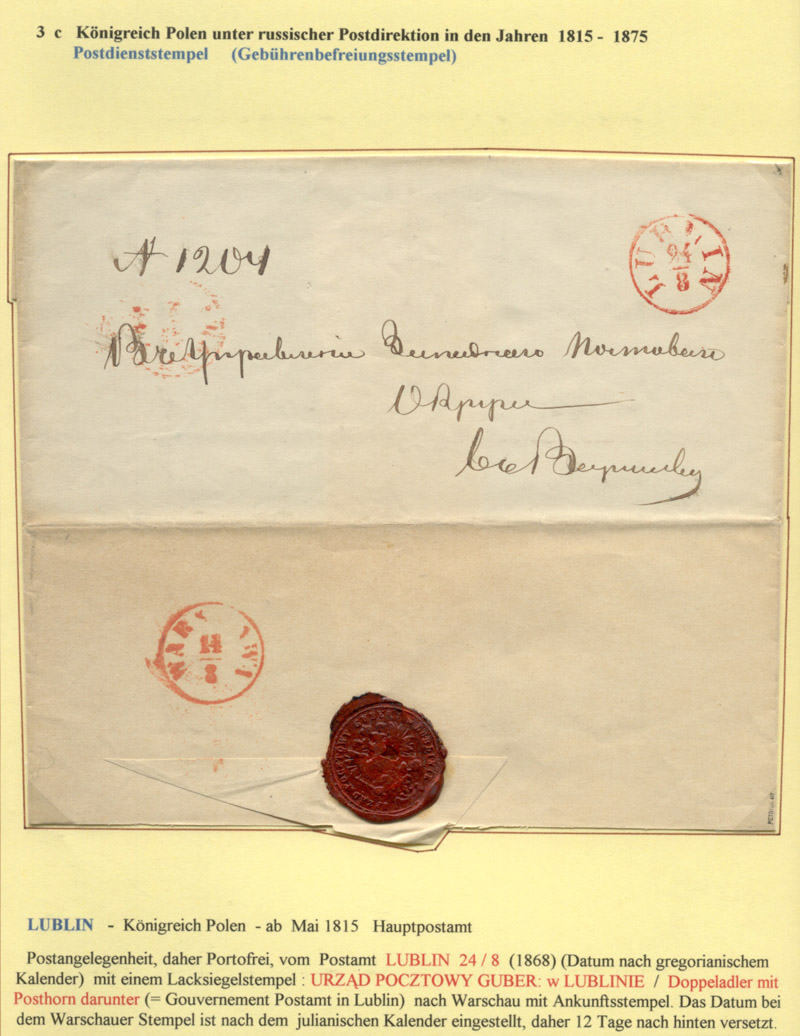 3 c Königreich Polen unter russischer Postdirektion in den Jahren 1815 - 1875
Postdienststempel (Gebührenbefreiungsstempel)
№ 1204
LUBLIN
24/8
Въ Управление Западнаго Почтоваго
Округа
въ Варшаву
WARS AWA
14
8
LUBLIN - Königreich Polen - ab Mai 1815 Hauptpostamt
Postangelegenheit, daher Portofrei, vom Postamt LUBLIN 24 / 8 (1868) (Datum nach gregorianischem
Kalender) mit einem Lacksiegelstempel : URZĄD POCZTOWY GUBER: w LUBLINIE / Doppeladler mit
Posthorn darunter (= Gouvernement Postamt in Lublin) nach Warschau mit Ankunftsstempel. Das Datum bei
dem Warschauer Stempel ist nach dem julianischen Kalender eingestellt, daher 12 Tage nach hinten versetzt.